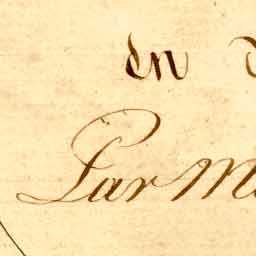 en
Par M